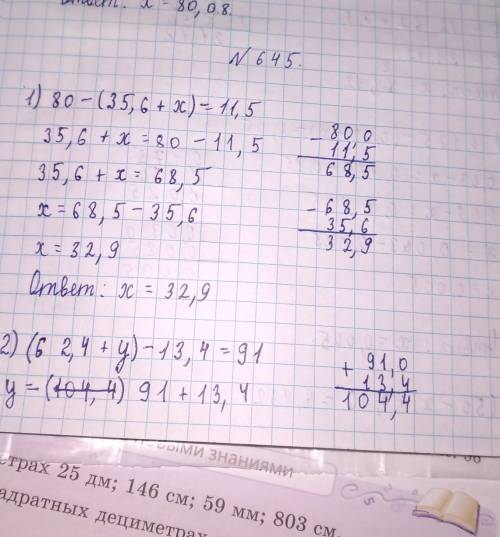 Ответ: x = 80,08.
№ 645.
1) 80 – (35,6 + x) = 11,5
35,6 + x = 80 – 11,5
35,6 + x = 68,5
x = 68,5 – 35,6
x = 32,9
Ответ: x = 32,9
– 80 0
11,5
68,5
– 68,5
35,6
32,9
2) (6 2,4 + y) – 13,4 = 91
y = (104,4) 91 + 13,4
+ 91,0
13,4
104,4
знаниями
метрах 25 дм; 146 см; 59 мм; 803 см
квадратных дециметрах